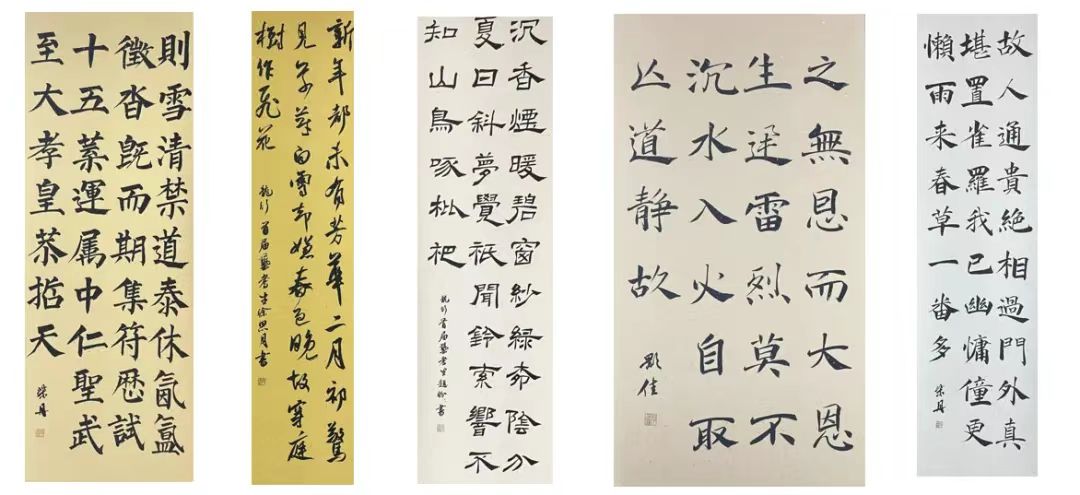 則雪清禁道泰休氤氳
徵沓旣而期集符歴試
十五葉運属中仁聖武
至大孝皇恭哲天
新年都未有芳華二月初驚
見草芽白雪却嫌春色晚故穿庭
樹作飛花
首届藝考生徐思月書
沉香煙暖碧窗紗綠柳陰分
夏日斜夢覺祇聞鈴索響不
知山鳥啄枇杷
首届藝考生趙書
之無恩而大恩
生迅雷烈莫不
沉水入火自取
亾道静故
故人通貴絶相過門外真
堪置雀羅我已幽慵僮更
懶雨来春草一番多